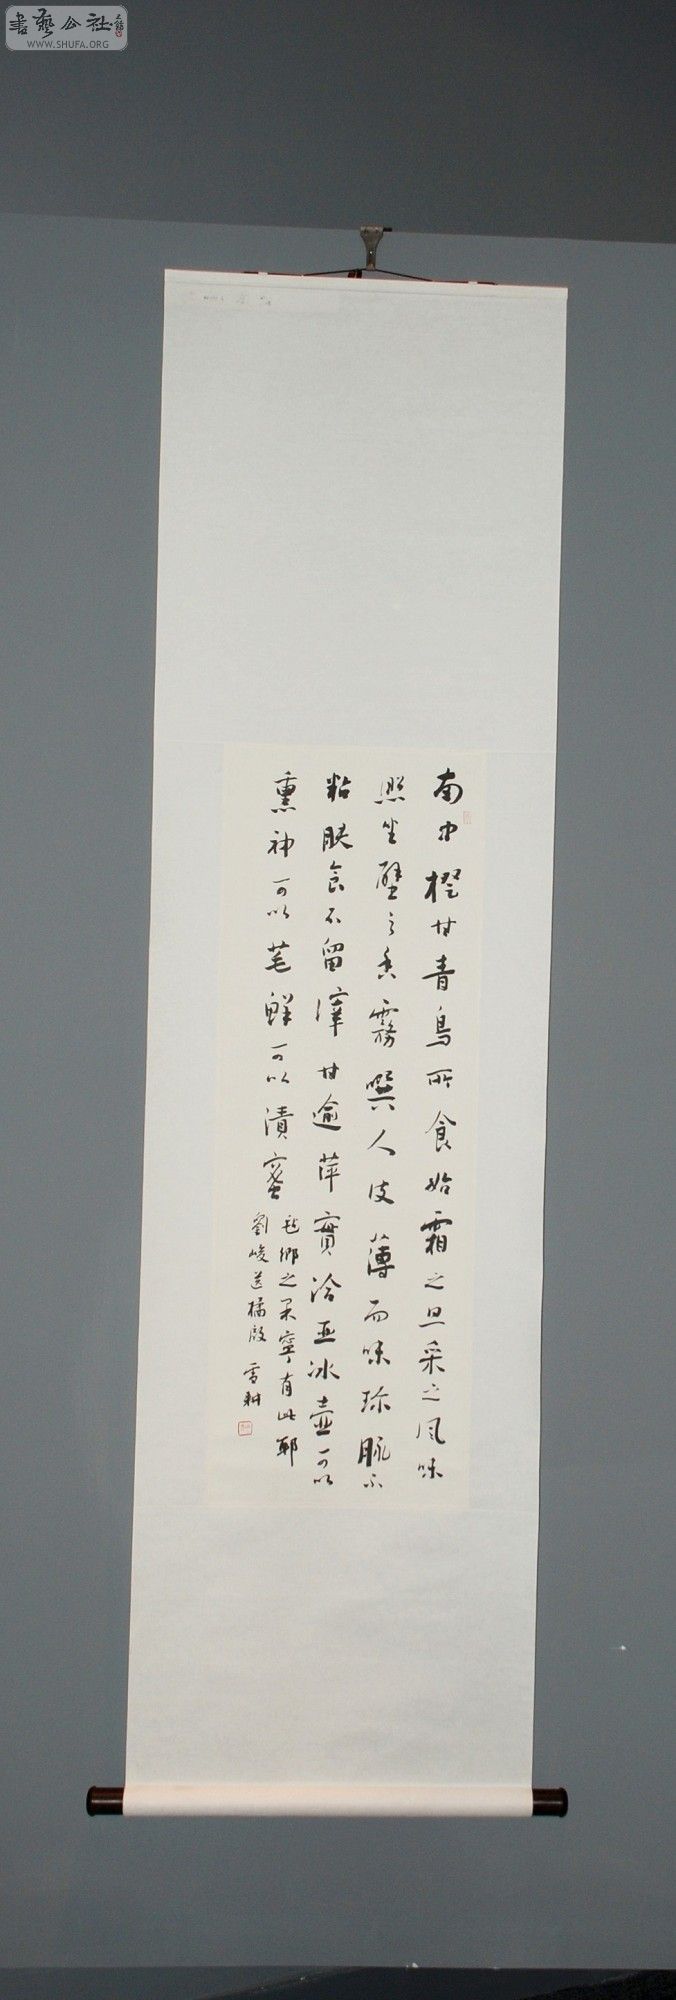 書藝公社
WWW.SHUFA.ORG
南中橙甘青鳥所食始霜之旦采之風味
照坐擘之香霧噀人皮薄而味珍脉不
粘膚食不留滓甘逾萍實冷亞冰壺可以
熏神可以芼鮮可以漬蜜
氊鄉之果寧有此耶
劉峻送橘啟 雪耕